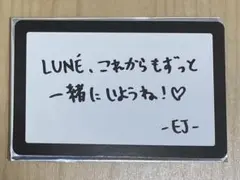 LUNÉ、これからもずっと
一緒にしようね！♡
-EJ-